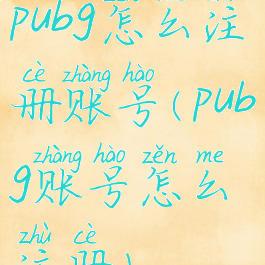 pubg怎么注
cè zhàng hào
册账号(pub
zhàng hào zěn me
g账号怎么
zhù cè
注册)